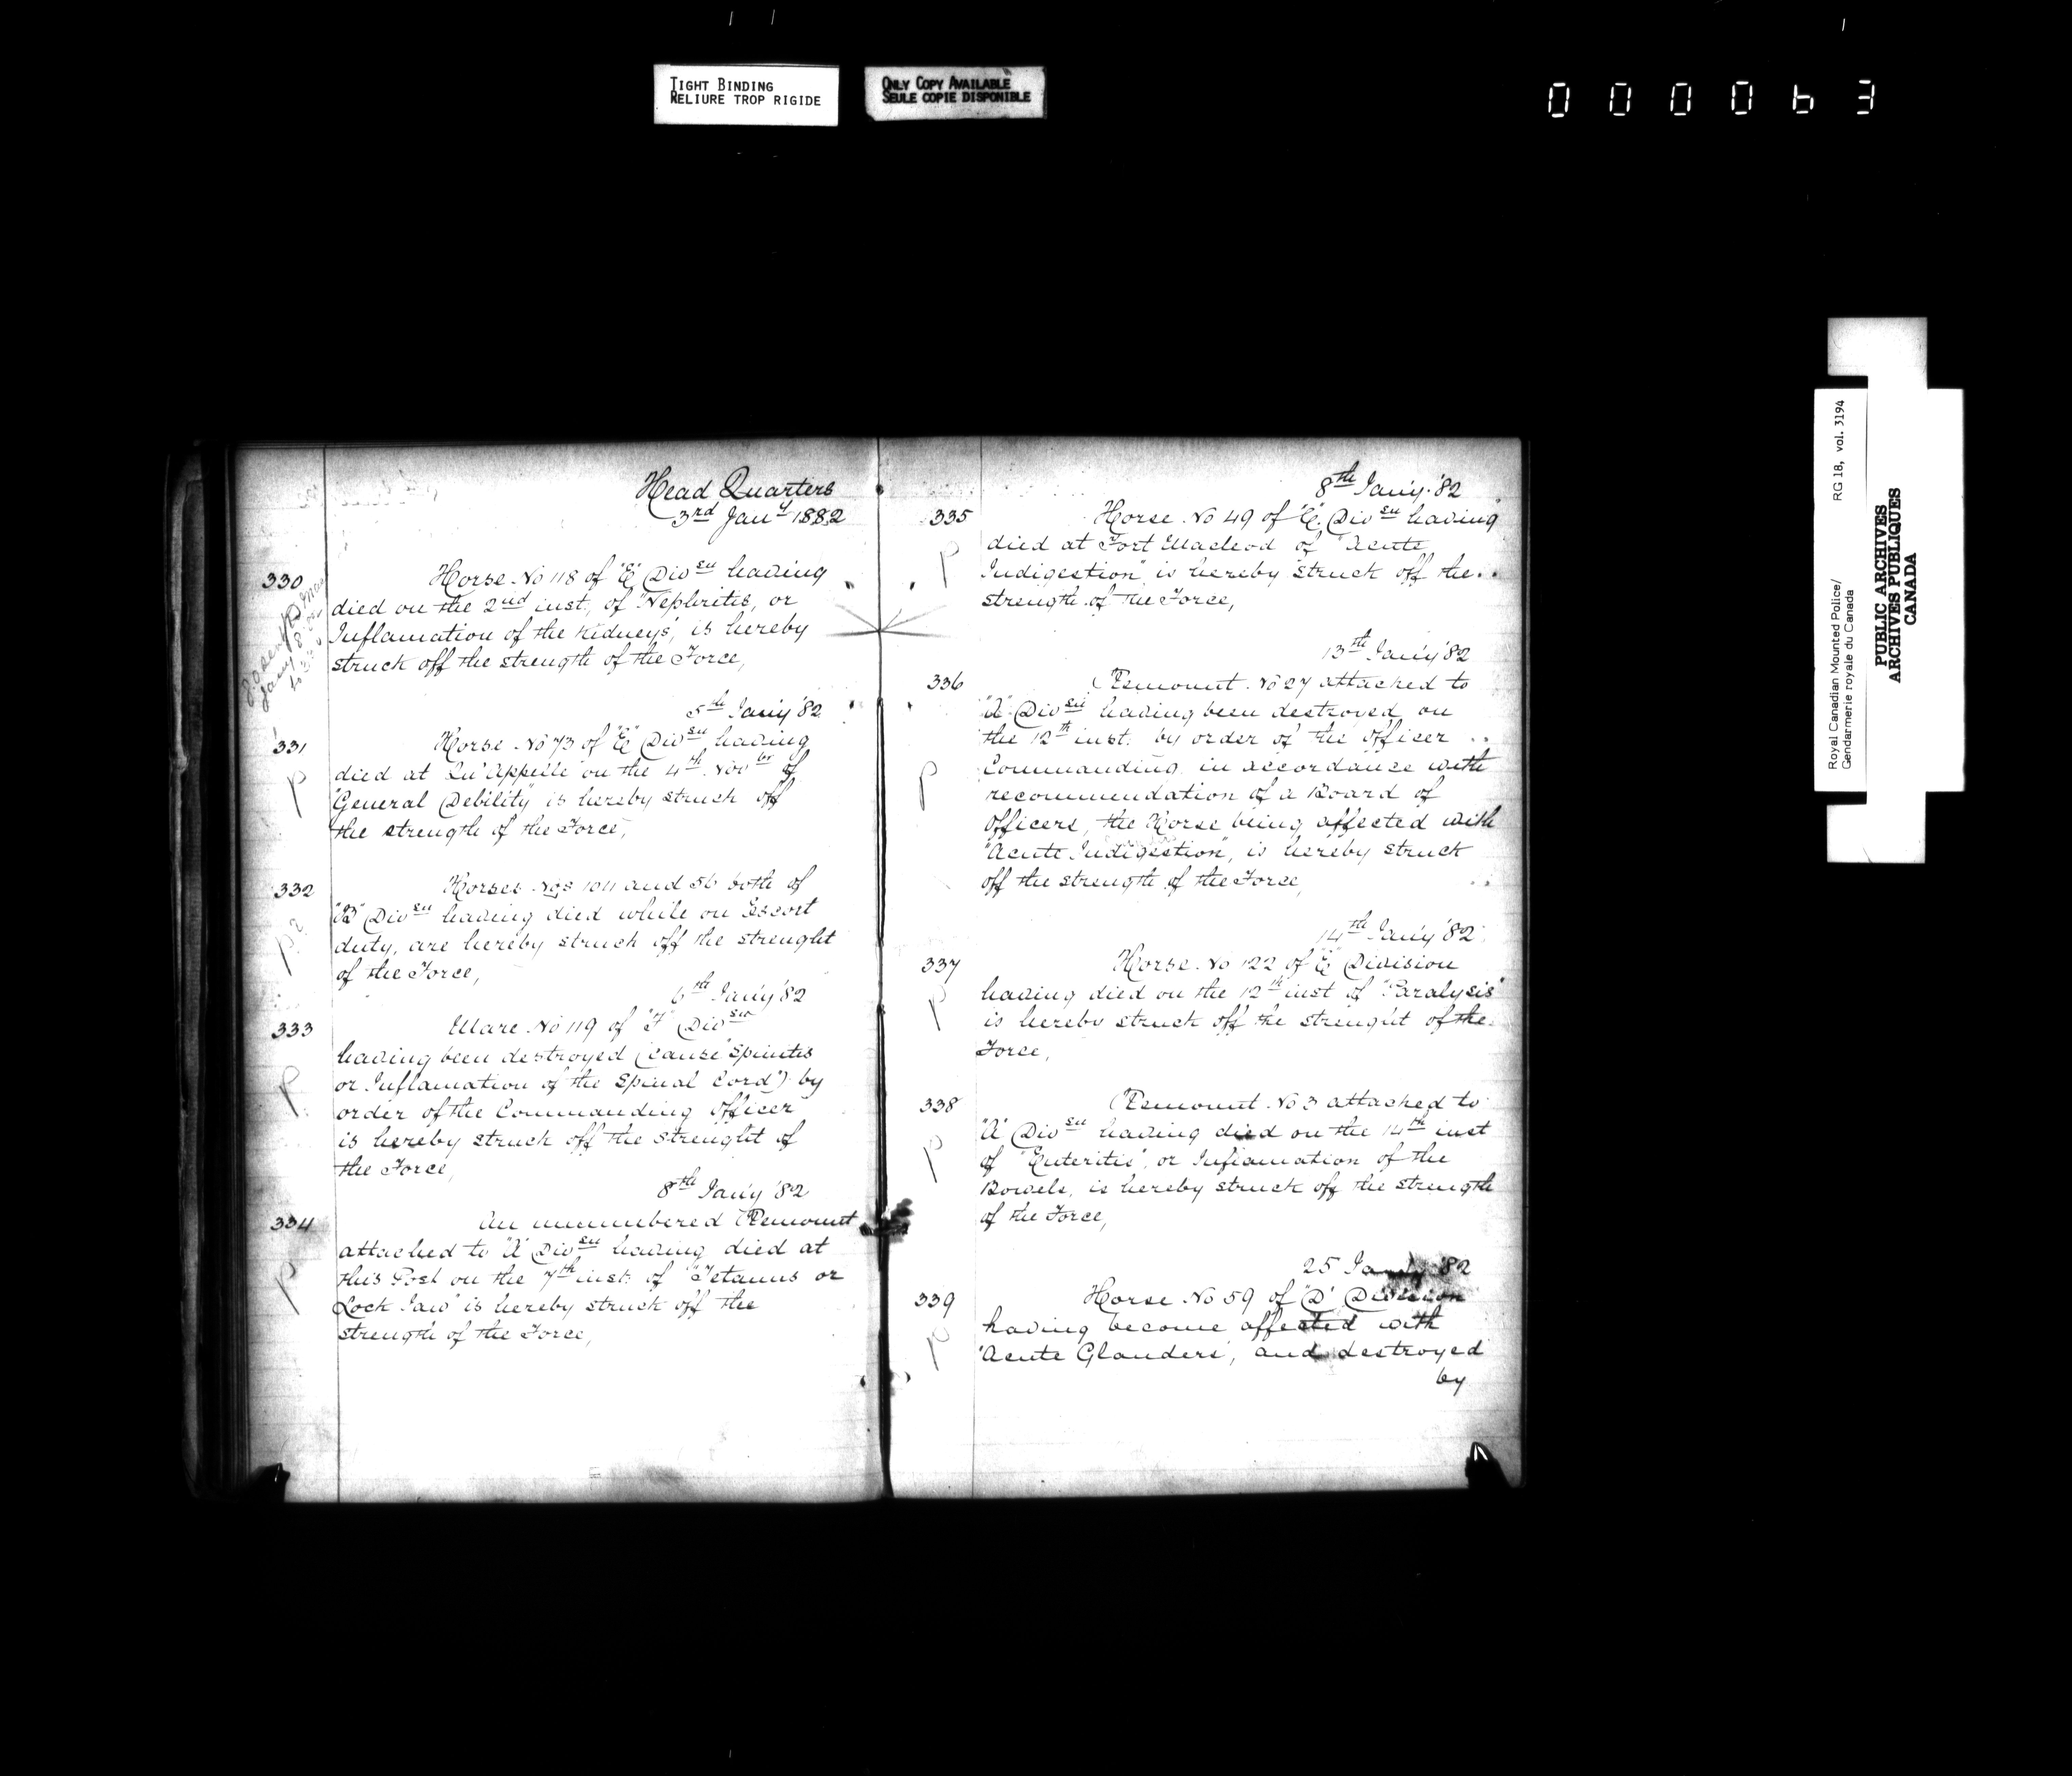 TIGHT BINDING
RELIURE TROP RIGIDE
ONLY COPY AVAILABLE
SEULE COPIE DISPONIBLE
000063
Head Quarters
3rd Jany 1882
330
Horse No 118 of "E" Divsn having
died on the 2nd inst, of "Nephritis, or
Inflamation of the Kidneys", is hereby
struck off the strength of the Force,
5th Jan'y '82
331
P
Horse No 73 of "E" Divsn having
died at Qu'Appelle on the 4th Novbr of
"General Debility" is hereby struck off
the strength of the Force,
332
P 2
Horses Nos 104 and 56 both of
"B" Divsn having died while on Escort
duty, are hereby struck off the strenght
of the Force,
6th Jan'y '82
333
P
Mare No 119 of "F" Divsn
having been destroyed (cause "Spinitis
or Inflamation of the Spinal Cord") by
order of the Commanding Officer
is hereby struck off the strenght of
the Force,
8th Jan'y '82
334
P
An unnumbered Remount
attached to "A" Divsn having died at
this Post on the 7th inst. of "Tetanus or
Lock Jaw" is hereby struck off the
strength of the Force,
8th Jan'y '82
335
P
Horse No 49 of "E" Divsn having
died at Fort Macleod of "Acute
Indigestion" is hereby struck off the
strength of the Force,
13th Jan'y '82
336
P
Remount No 27 attached to
"A" Divsn having been destroyed on
the 12th inst. by order of the Officer
Commanding in accordance with
recommendation of a Board of
Officers, the Horse being affected with
"Acute Indigestion", is hereby struck
off the strength of the Force,
14th Jan'y '82
337
P
Horse No 122 of "E" Division
having died on the 12th inst of "Paralysis"
is hereby struck off the strenght of the
Force,
338
P
Remount No 3 attached to
"A" Divsn having died on the 14th inst
of "Enteritis", or Inflamation of the
Bowels, is hereby struck off the strength
of the Force,
25 Jan'y '82
339
P
Horse No 59 of "D" Division
having become affected with
"Acute Glanders", and destroyed
by
Royal Canadian Mounted Police/
Gendarmerie royale du Canada
RG 18, vol. 3194
PUBLIC ARCHIVES
ARCHIVES PUBLIQUES
CANADA